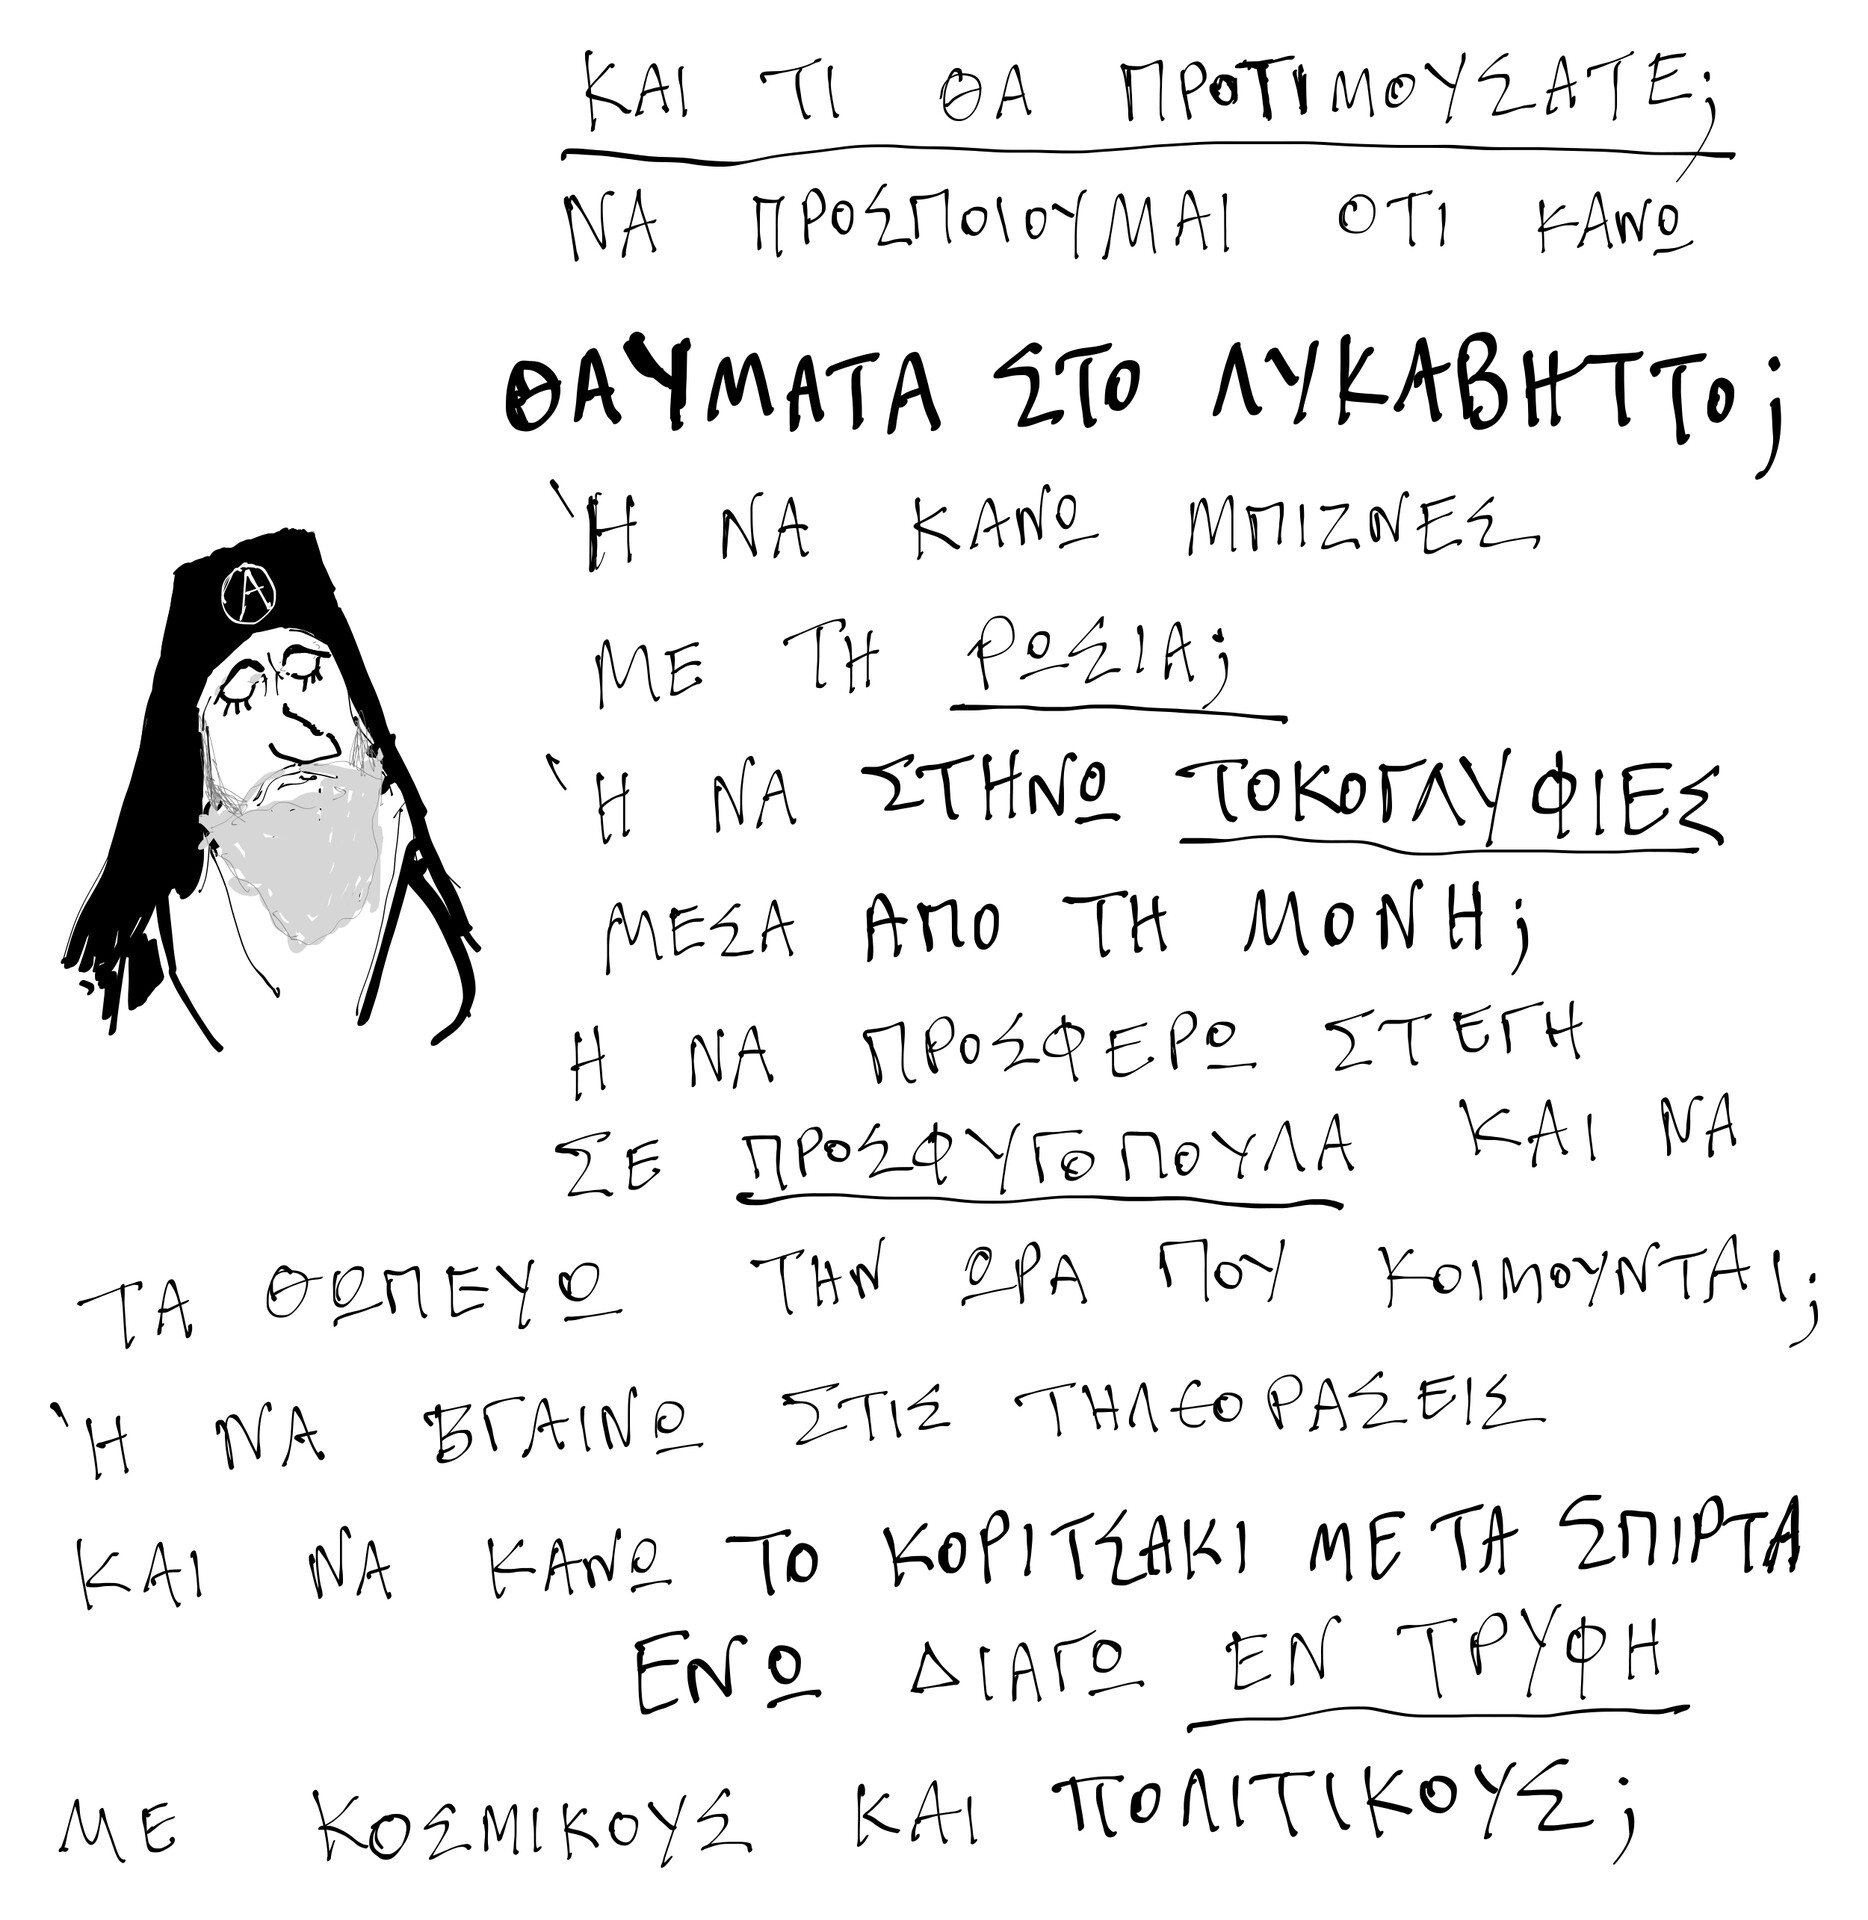 ΚΑΙ ΤΙ ΘΑ ΠΡΟΤΙΜΟΥΣΑΤΕ;
ΝΑ ΠΡΟΣΠΟΙΟΥΜΑΙ ΟΤΙ ΚΑΝΩ
ΘΑΥΜΑΤΑ ΣΤΟ ΛΥΚΑΒΗΤΤΟ;
Ή ΝΑ ΚΑΝΩ ΜΠΙΖΝΕΣ
ΜΕ ΤΗ ΡΩΣΙΑ;
Ή ΝΑ ΣΤΗΝΩ ΤΟΚΟΓΛΥΦΙΕΣ
ΜΕΣΑ ΑΠΟ ΤΗ ΜΟΝΗ;
Η ΝΑ ΠΡΟΣΦΕΡΩ ΣΤΕΓΗ
ΣΕ ΠΡΟΣΦΥΓΟΠΟΥΛΑ ΚΑΙ ΝΑ
ΤΑ ΘΩΠΕΥΩ ΤΗΝ ΩΡΑ ΠΟΥ ΚΟΙΜΟΥΝΤΑΙ;
Ή ΝΑ ΒΓΑΙΝΩ ΣΤΙΣ ΤΗΛΕΟΡΑΣΕΙΣ
ΚΑΙ ΝΑ ΚΑΝΩ ΤΟ ΚΟΡΙΤΣΑΚΙ ΜΕ ΤΑ ΣΠΙΡΤΑ
ΕΝΩ ΔΙΑΓΩ ΕΝ ΤΡΥΦΗ
ΜΕ ΚΟΣΜΙΚΟΥΣ ΚΑΙ ΠΟΛΙΤΙΚΟΥΣ;
A